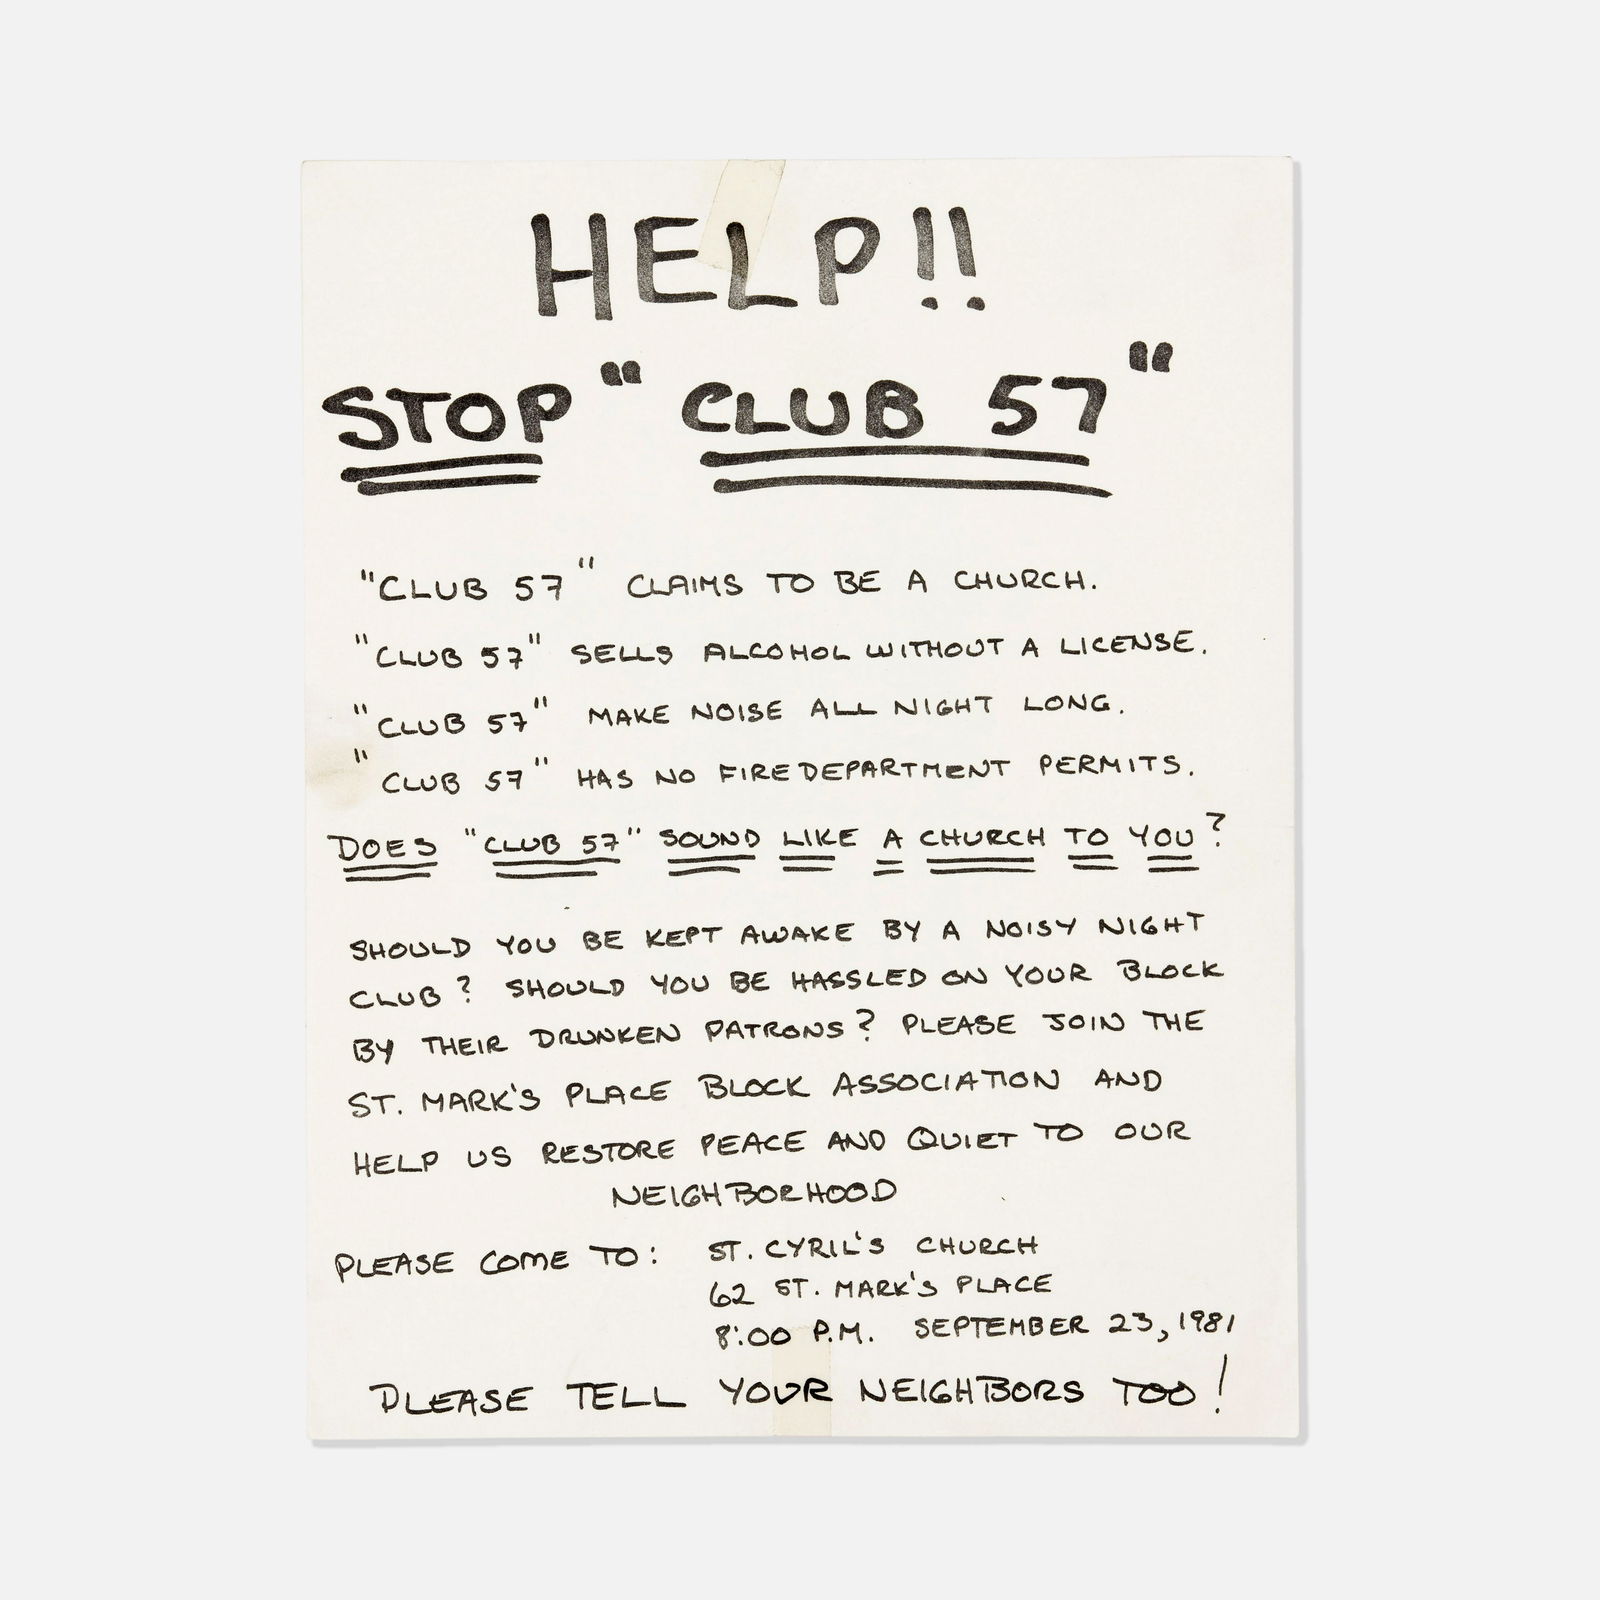 HELP!!
STOP "CLUB 57"
"CLUB 57" CLAIMS TO BE A CHURCH.
"CLUB 57" SELLS ALCOHOL WITHOUT A LICENSE.
"CLUB 57" MAKE NOISE ALL NIGHT LONG.
"CLUB 57" HAS NO FIRE DEPARTMENT PERMITS.
DOES "CLUB 57" SOUND LIKE A CHURCH TO YOU?
SHOULD YOU BE KEPT AWAKE BY A NOISY NIGHT
CLUB? SHOULD YOU BE HASSLED ON YOUR BLOCK
BY THEIR DRUNKEN PATRONS? PLEASE JOIN THE
ST. MARK'S PLACE BLOCK ASSOCIATION AND
HELP US RESTORE PEACE AND QUIET TO OUR
NEIGHBORHOOD
PLEASE COME TO: ST. CYRIL'S CHURCH
62 ST. MARK'S PLACE
8:00 P.M. SEPTEMBER 23, 1981
PLEASE TELL YOUR NEIGHBORS TOO!